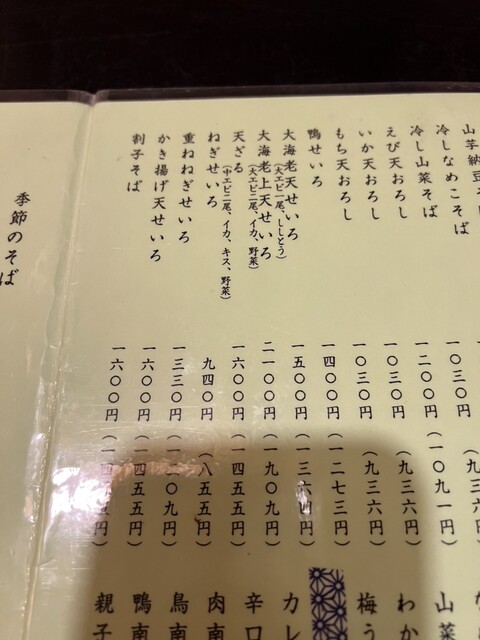 山芋納豆そ
冷しなめこそば
冷し山菜そば 一〇三〇円 (九三六円
えび天おろし 一二〇〇円 (一〇九一円)
いか天おろし 一〇三〇円 (九三六円)
もち天おろし 一〇三〇円 (九三六円)
鴨せいろ 一四〇〇円 (一二七三円)
大海老天せいろ 一五〇〇円 (一三六四円)
(大エビ二尾、ししとう)
大海老上天せいろ 二一〇〇円 (一九〇九円)
(大エビ二尾、イカ、野菜)
天ざる 一六〇〇円 (一四五五円)
(中エビ二尾、イカ、キス、野菜)
ねぎせいろ 九四〇円 (八五五円)
重ねねぎせいろ 一三三〇円 (一二〇九円)
かき揚げ天せいろ 一六〇〇円 (一四五五円)
割子そば 一六〇〇円 (一四五五円)
山菜
わか
梅う
カレ
辛口
肉南
鳥南
鴨南
親子
季節のそば